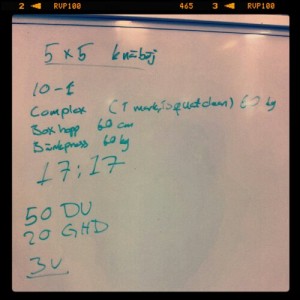 2 RVP100 465 3 RVP100
5x5 knäböj
10-1
Complex (1 mark, 1 squat clean) 60 kg
Box hopp 60 cm
Bänkpress 60 kg
17:17
50 DU
20 GHD
3v